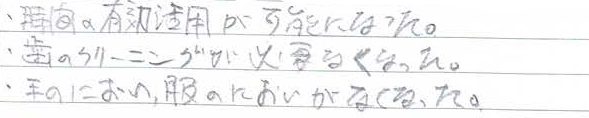 ・時間の有効活用が可能になった。
・歯のクリーニングが必要なくなった。
・手のにおい,服のにおいがなくなった。